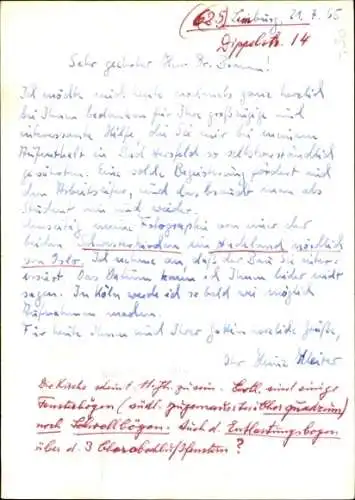 (625) Limburg, 21.7.65
Dippelstr. 14
Sehr geehrter Herr Dr. Braun!
Ich möchte mich heute nochmals ganz herzlich
bei Ihnen bedanken für Ihre großzügige und
interessante Hilfe die Sie mir bei meinem
Aufenthalt in Bad Hersfeld so selbstverständlich
gewährten. Eine solche Begeisterung fördert auch
den Arbeitseifer, und das braucht man als
Student nun mal wieder.
meine Fotographie von einer der
beiden in Hadeland nördlich
von Oslo. Ich nehme an, daß der Bau Sie inter-
essiert. Das Datum kann ich Ihnen leider nicht
sagen. In Köln werde ich so bald wie möglich
Aufnahmen machen.
Für heute Ihnen und Ihrer Gattin herzliche Grüße,
Ihr Heinz
Die Kirche scheint zu sein. sind einige
Fensterbögen (südl. zugemauertes Chorquadrum)
noch Schwellbögen. Auch d. Entlastungsbogen
über d. 3 Oberabschlußfenstern?